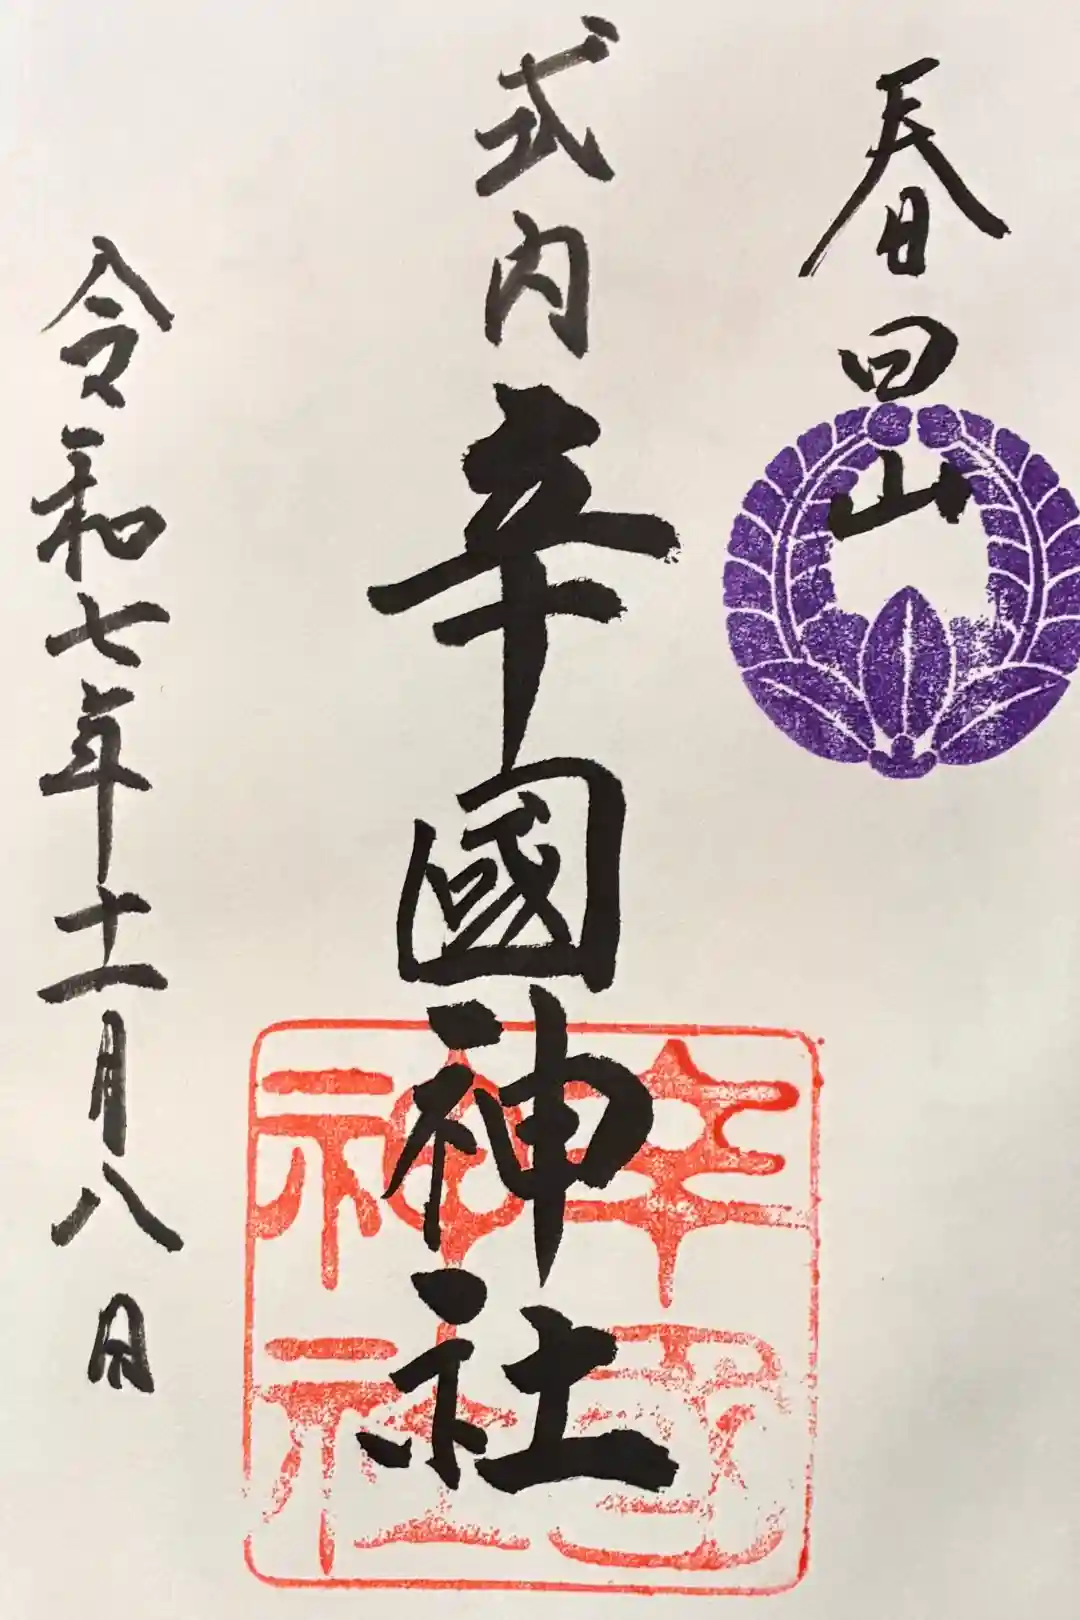 春日山
式内辛國神社
令和七年十一月八日
辛國神社